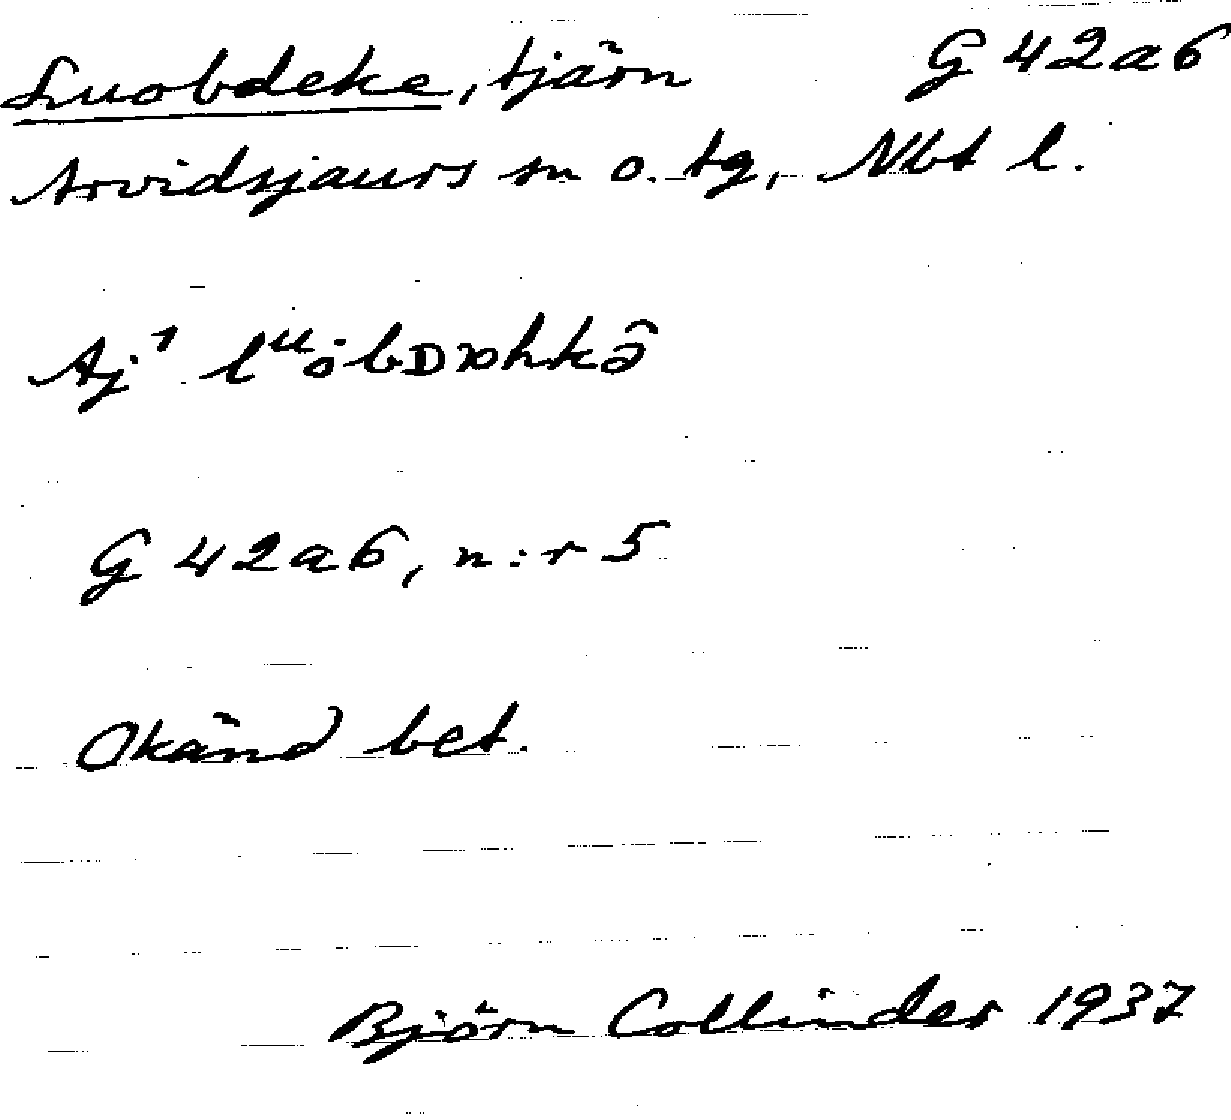 Luobdeke, tjärn G 42a6
Arvidsjaurs sn o. tg, Nbt l.
Aj¹
G 42a6, n:r 5
Okänd bet.
Björn Collinder 1937